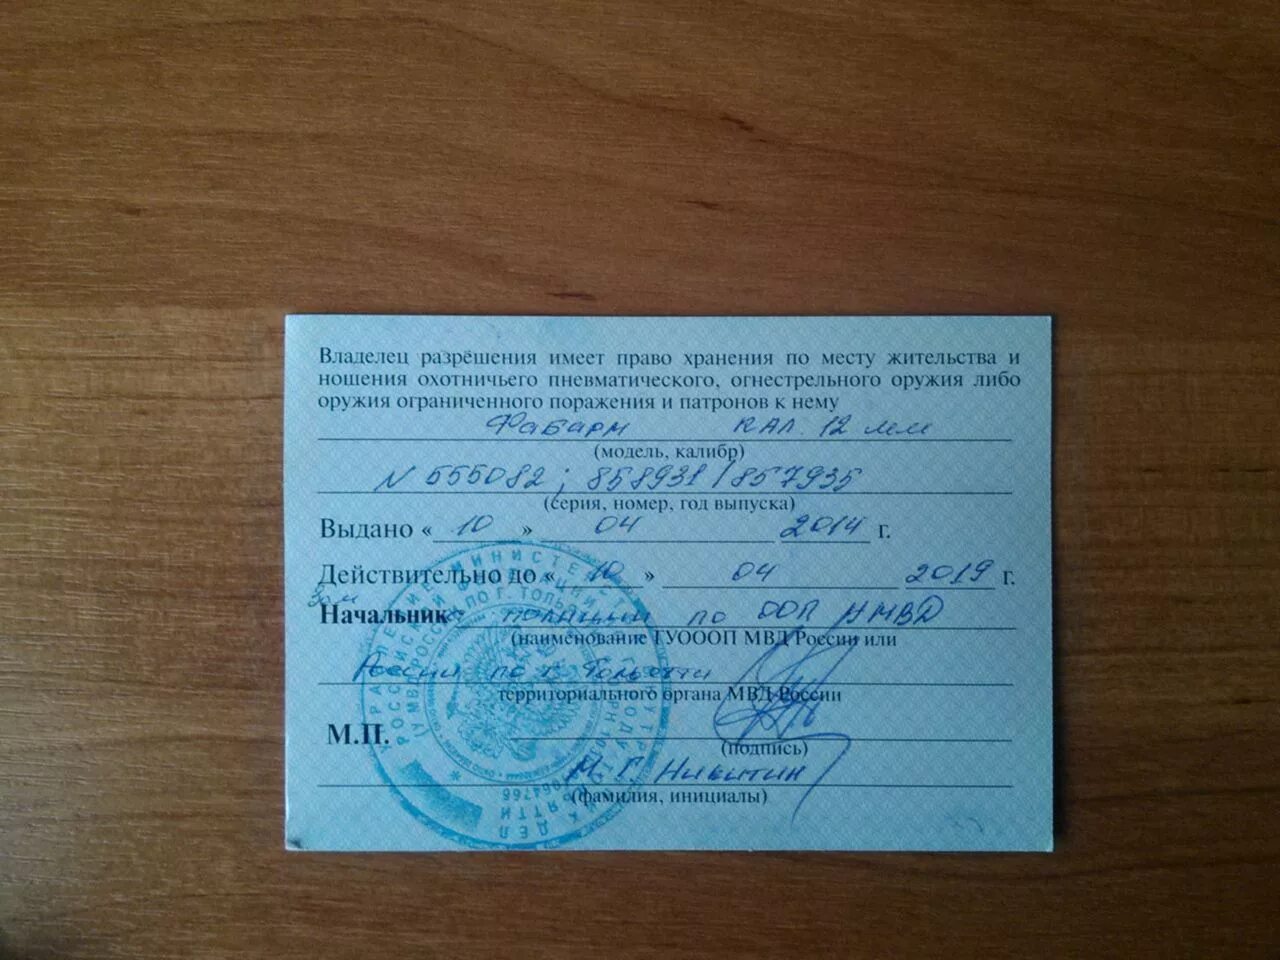 Владелец разрешения имеет право хранения по месту жительства и
ношения охотничьего пневматического, огнестрельного оружия либо
оружия ограниченного поражения и патронов к нему
Фабарм кал. 12 мм
(модель, калибр)
N 555082; 858931/857935
(серия, номер, год выпуска)
Выдано « 10 » 04 2014 г.
Действительно до « 10 » 04 2019 г.
Зам
Начальник полиции по ООП УМВД
(наименование ГУОООП МВД России или
России по г. Тольятти
территориального органа МВД России
М.П.
(подпись)
М. Г. Никитин
(фамилия, инициалы)